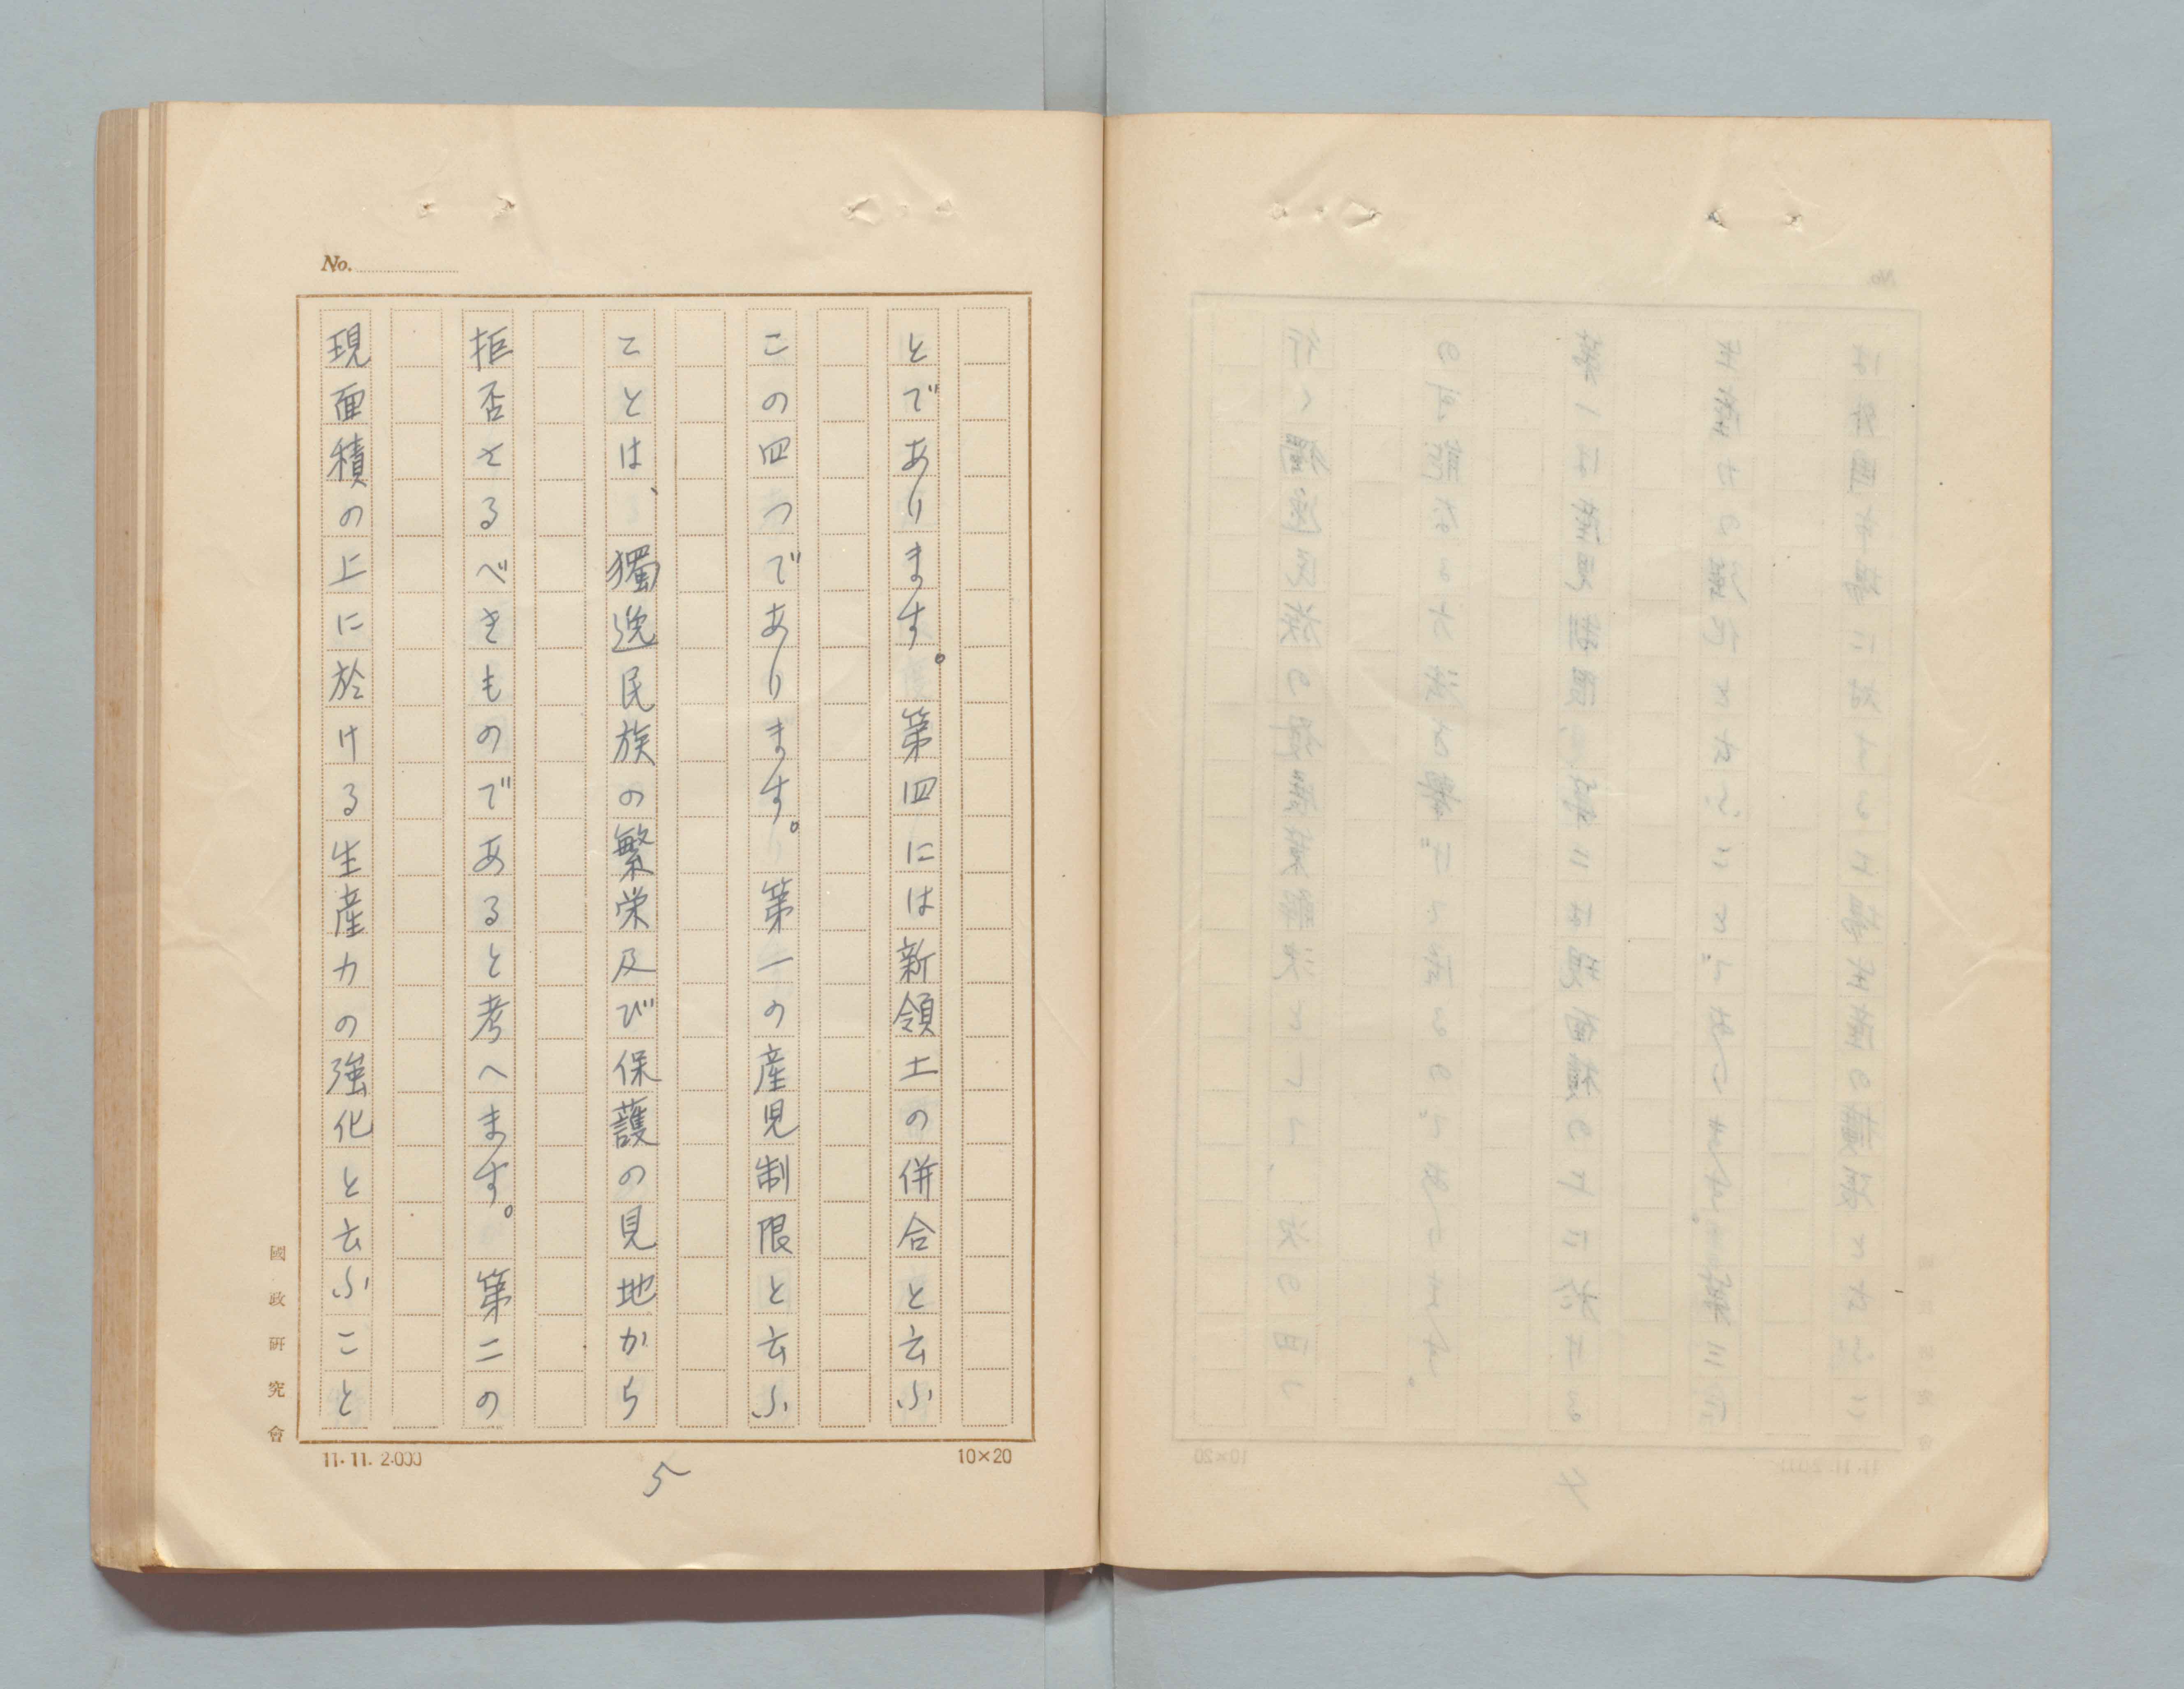 No.
とであります。第四には新領土の併合と云ふ
この四つであります。第一の産児制限と云ふ
ことは、獨逸民族の繁栄及び保護の見地から
拒否さるべきものであると考へます。第二の
現面積の上に於ける生産力の強化と云ふこと
國政研究會
11.11.2.000
10×20
5